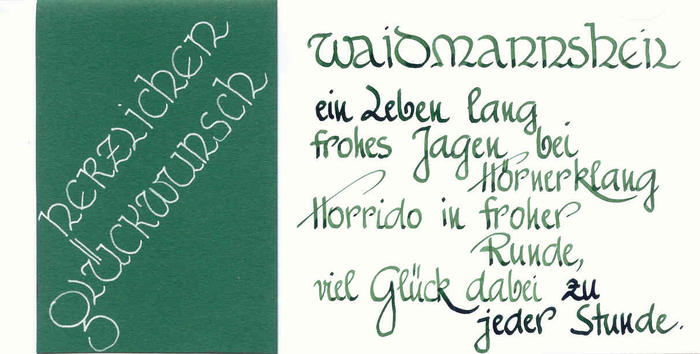 herzlichen
glückwunsch
waidmannsheil
ein Leben lang
frohes Jagen bei
Hörnerklang
Horrido in froher
Runde,
viel Glück dabei zu
jeder Stunde.